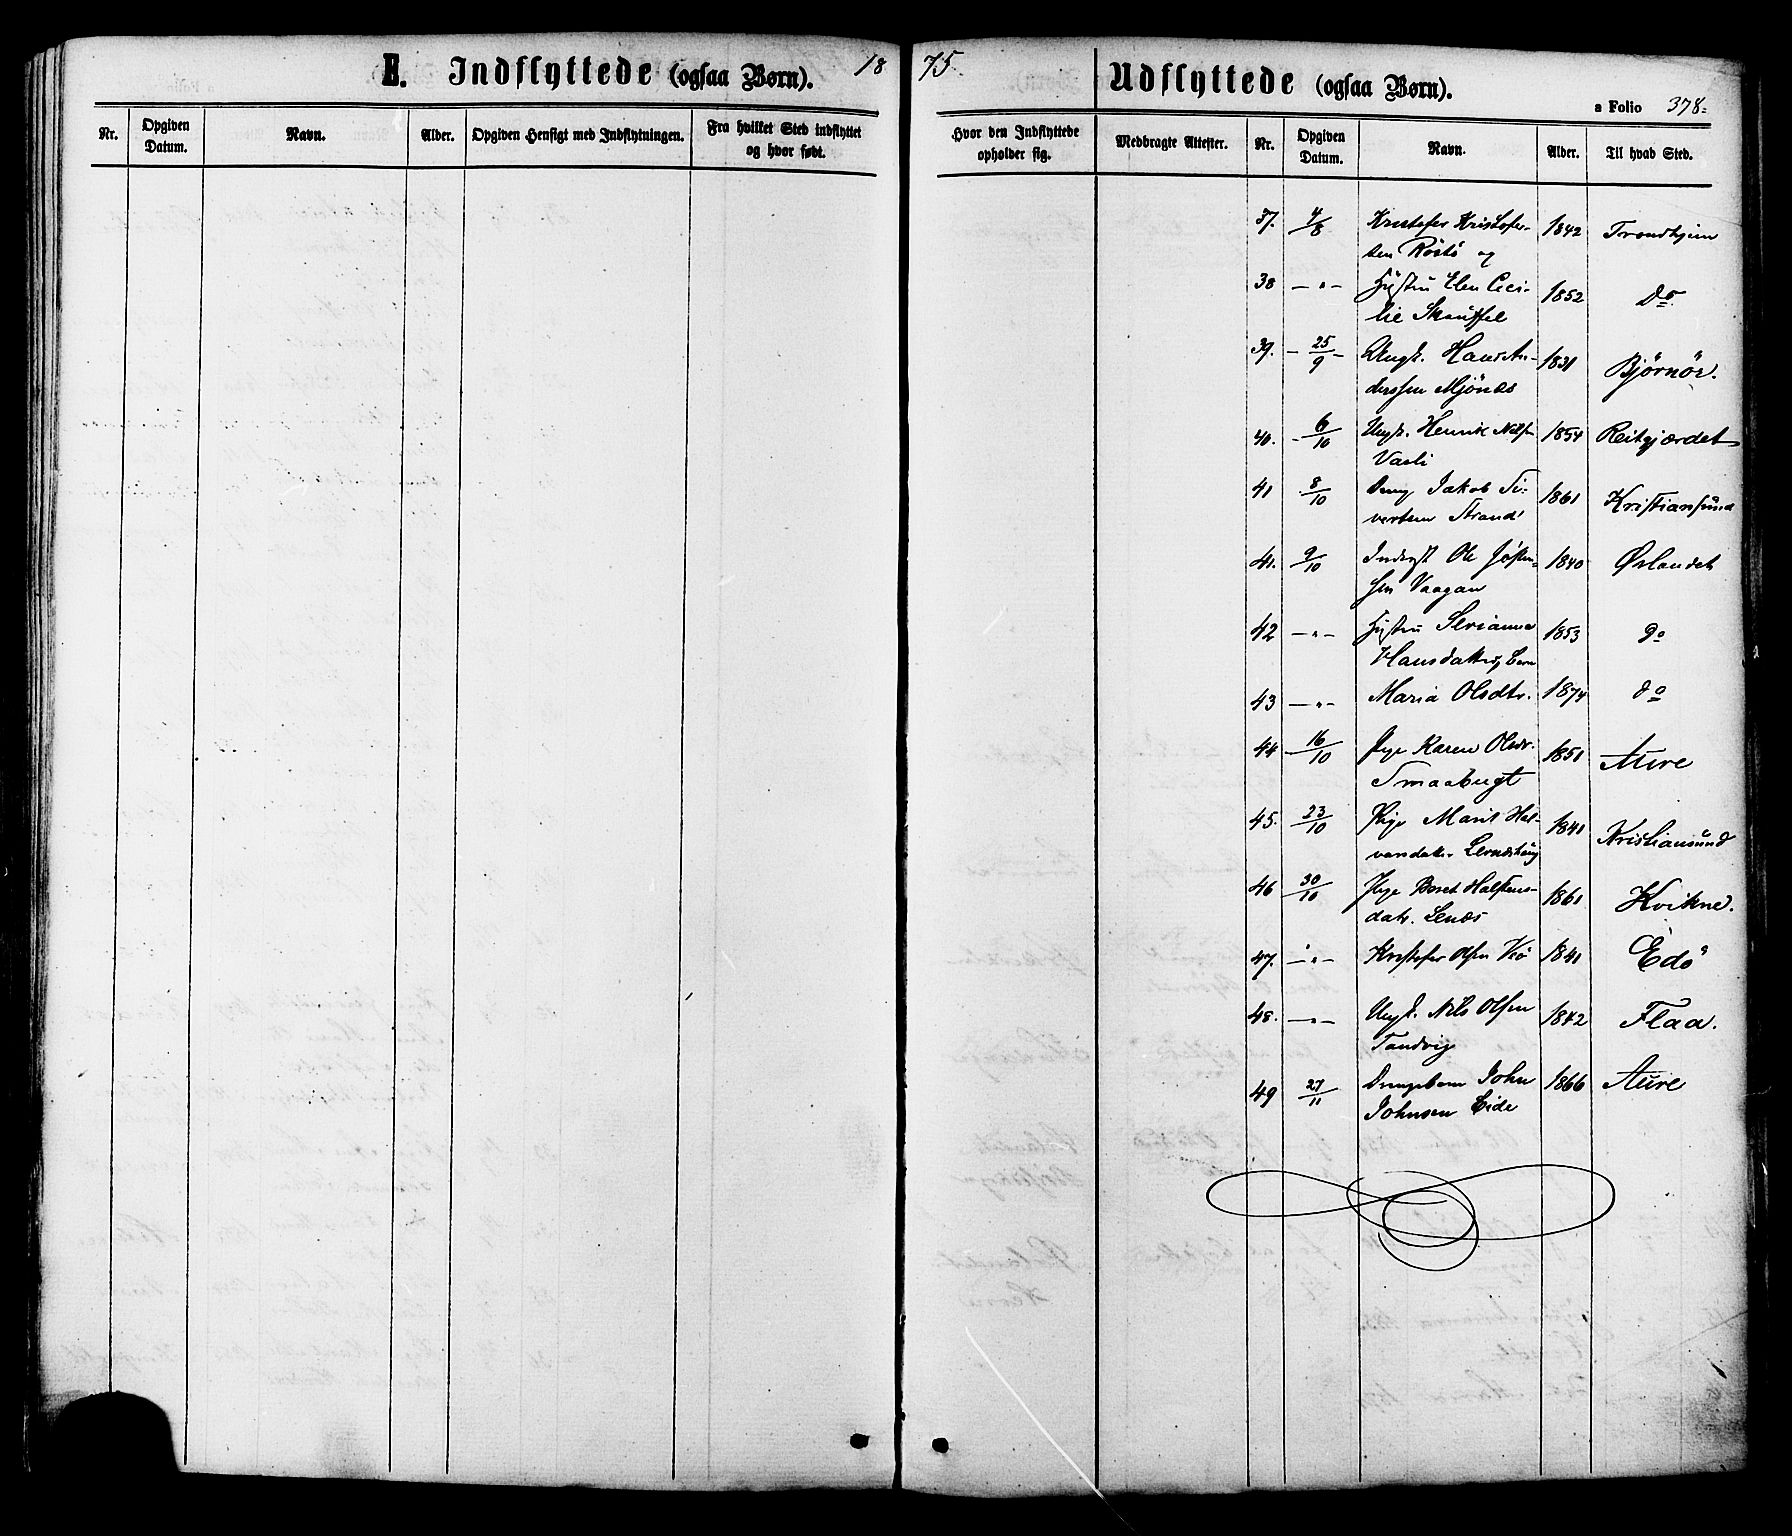 E. Indflyttede (ogsaa Børn). 18
Nr. Opgiven Datum. Navn. Alder. Opgiven Hensigt med Indflytningen. Fra hvilket Sted indflyttet og hvor født.
75. Udflyttede (ogsaa Børn).
a Folio 378.
Hvor den Indflyttede opholder sig. Medbragte Attester. Nr. Opgiven Datum. Navn. Alder. Til hvad Sted.
37. 4/8 Kristofer Kristofer- 1842 Trondhjem
sen Röstö og
38 -"- Hustru Elen Ceci- 1852 Do.
lie Skauffel
39. 25/9 Ungk. Hans An- 1831 Bjørnör.
derssen Mjönes
40. 6/10 Ungk. Henrik Nilss 1854 Reitgjærdet
Vasli
41 8/10 Dreng Jakob Si- 1861 Kristiansund
vertsen Strand
41. 9/10 Inderst Ole Josten- 1840 Ørlandet
sen Vaagan
42 -"- Hustru Serianna 1853 do
Hansdatter, Barn
43 -"- Maria Olsdtr. 1874 do
44 16/10 Pige Karen Olsdr. 1851 Aure
Smaabugt
45. 23/10 Pige Marit Hal- 1841 Kristiansund
vorsdatr.
46 30/10 Pige Beret Halstens- 1861 Kvikne.
datr. Lenes
47. -"- Kristofer Olsen 1841 Edö
48. -"- Ungk. Nils Olsen 1842 Flaa.
Tandvig
49 27/11 Drengebarn John 1866 Aure
Johnsen Eide